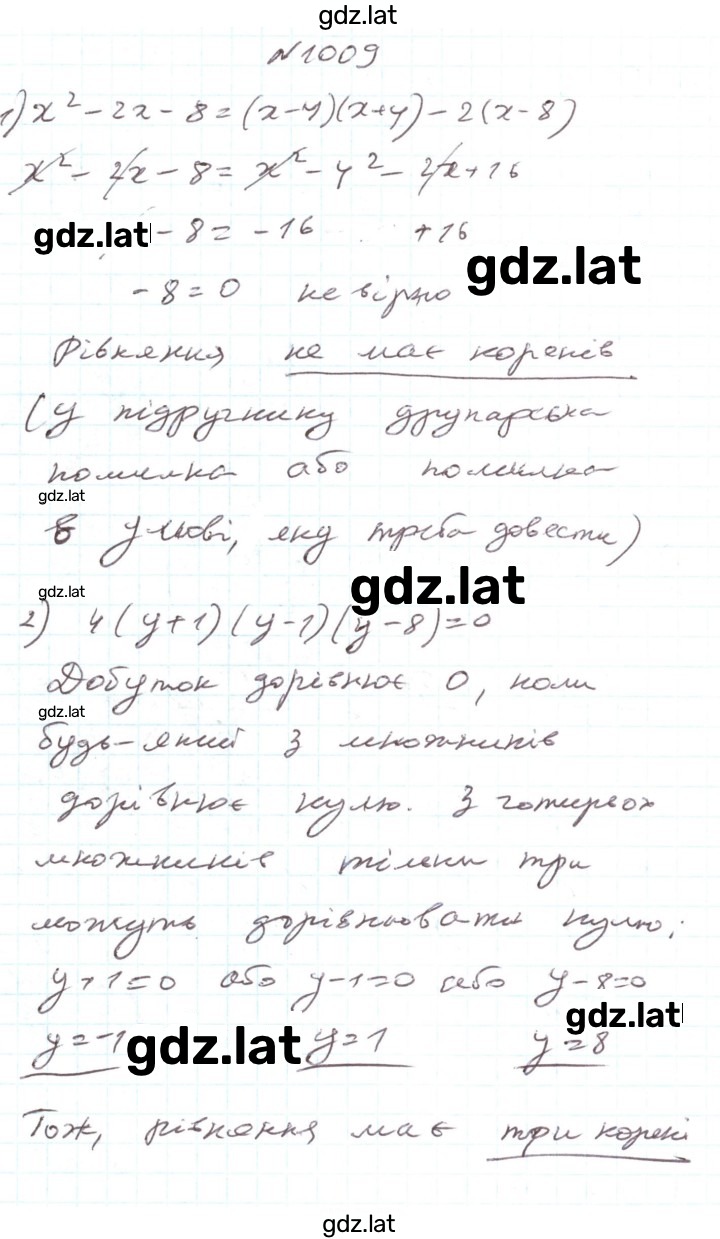 gdz.lat
№1009
1) x² - 2x - 8 = (x-4)(x+4) - 2(x-8)
x² - 2x - 8 = x² - 4² - 2x + 16
gdz.lat - 8 = -16 + 16
gdz.lat
-8 = 0 не вірно
Рівняння не має коренів
(у підручнику друкарська
помилка або помилка
gdz.lat
в умові, яку треба довести)
gdz.lat
gdz.lat
2) 4(y+1)(y-1)(y-8)=0
Добуток дорівнює 0, коли
gdz.lat
будь-який з множників
дорівнює нулю. З чотирьох
множників тільки три
можуть дорівнювати нулю;
y+1=0 або y-1=0 або y-8=0
gdz.lat
y=-1 gdz.lat y=1 y=8
Тож, рівняння має три корені
gdz.lat